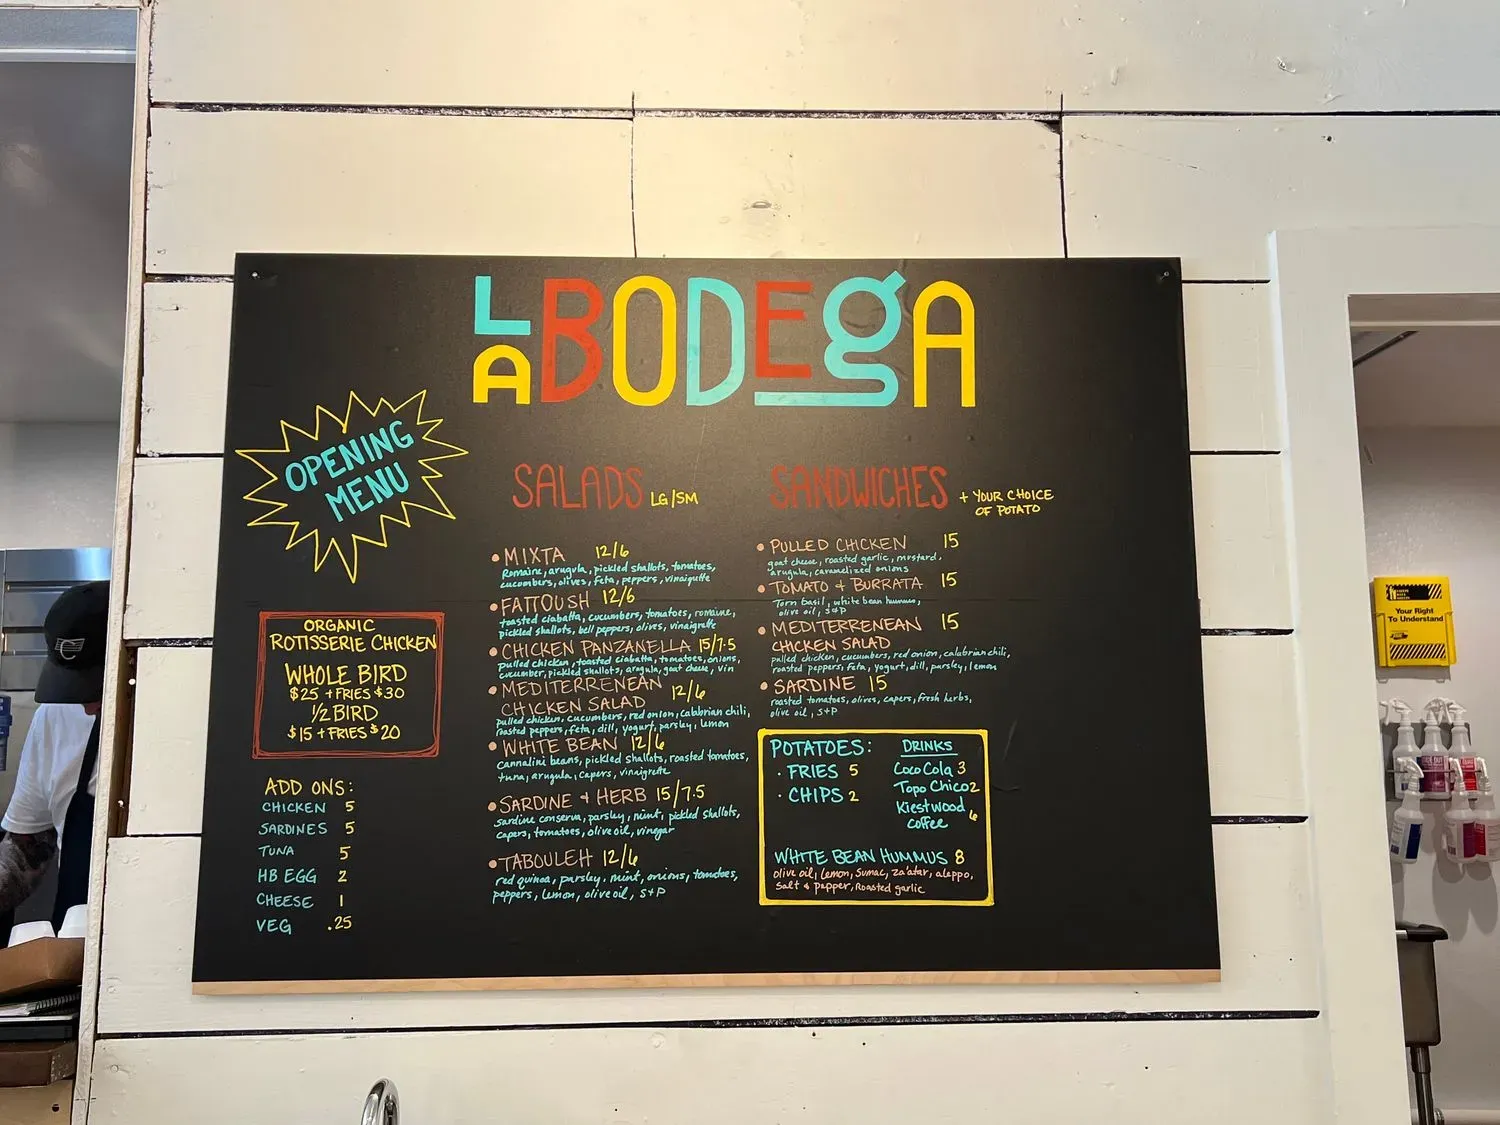 LA BODEGA
OPENING
MENU
ORGANIC
ROTISSERIE CHICKEN
WHOLE BIRD
$25 + FRIES $30
1/2 BIRD
$15 + FRIES $20
ADD ONS:
CHICKEN 5
SARDINES 5
TUNA 5
HB EGG 2
CHEESE 1
VEG .25
SALADS LG/SM
• MIXTA 12/6
Romaine, arugula, pickled shallots, tomatoes,
cucumbers, olives, feta, peppers, vinaigrette
• FATTOUSH 12/6
toasted ciabatta, cucumbers, tomatoes, romaine,
pickled shallots, bell peppers, olives, vinaigrette
• CHICKEN PANZANELLA 15/7.5
pulled chicken, toasted ciabatta, tomatoes, onions,
cucumber, pickled shallots, arugula, goat cheese, vin
• MEDITERRENEAN 12/6
CHICKEN SALAD
pulled chicken, cucumbers, red onion, calabrian chili,
roasted peppers, feta, dill, yogurt, parsley, lemon
• WHITE BEAN 12/6
Cannalini beans, pickled shallots, roasted tomatoes,
tuna, arugula, capers, vinaigrette
• SARDINE + HERB 15/7.5
Sardine conserva, parsley, mint, pickled shallots,
capers, tomatoes, olive oil, vinegar
• TABOULEH 12/6
red quinoa, parsley, mint, onions, tomatoes,
peppers, lemon, olive oil, S+P
SANDWICHES + YOUR CHOICE
OF POTATO
• PULLED CHICKEN 15
goat cheese, roasted garlic, mustard,
arugula, caramelized onions
• TOMATO + BURRATA 15
Torn basil, white bean hummus,
olive oil, S+P
• MEDITERRENEAN 15
CHICKEN SALAD
pulled chicken, cucumbers, red onion, calabrian chili,
roasted peppers, feta, yogurt, dill, parsley, lemon
• SARDINE 15
roasted tomatoes, olives, capers, fresh herbs,
olive oil, S+P
POTATOES:
· FRIES 5
· CHIPS 2
DRINKS
Coca Cola 3
Topo Chico 2
Kiestwood
Coffee 6
WHITE BEAN HUMMUS 8
olive oil, lemon, sumac, za'atar, aleppo,
Salt + pepper, Roasted garlic
Your Right
To Understand